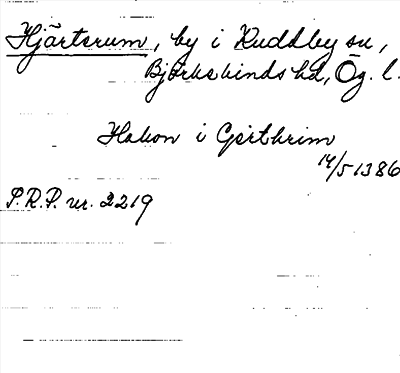 Hjärterum, by i Kuddby sn,
Björkekinds hd, Ög. l.
Hakon i Gerthrim
14/5 1386
S.R.P. nr. 2219